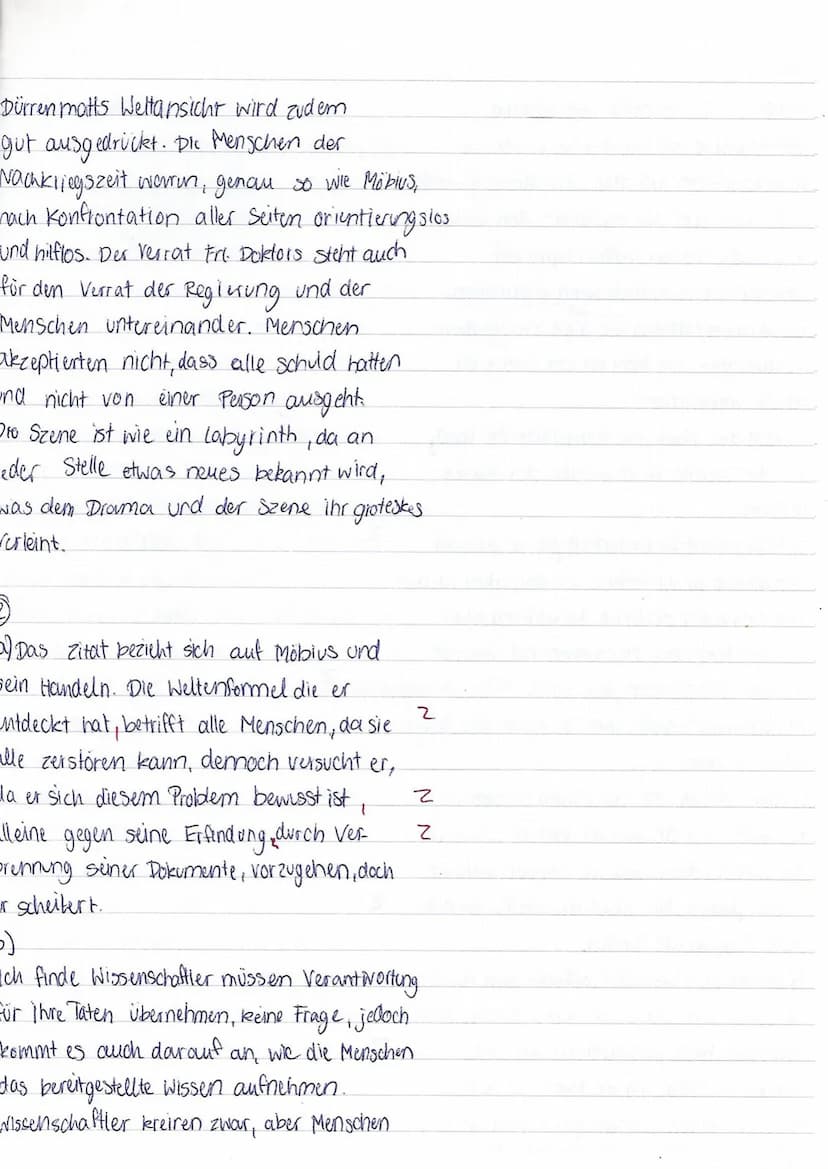 Dürrenmatts Weltansicht wird zudem
gut ausgedrückt. Die Menschen der
Nachkriegszeit warren, genau so wie Möbius,
nach Konfrontation aller Seiten orientierungslos
und hilflos. Der Verrat Frl. Doktors steht auch
für den Verrat der Regierung und der
Menschen untereinander. Menschen
akzeptierten nicht, dass alle schuld hatten
nd nicht von einer Person ausgeht.
Die Szene ist wie ein Labyrinth, da an
eder Stelle etwas neues bekannt wird,
was dem Drama und der Szene ihr groteskes
verleint.
2
a) Das Zitat bezieht sich auf Möbius und
sein Handeln. Die Weltenformel die er
entdeckt hat, betrifft alle Menschen, da sie Z
alle zerstören kann, dennoch versucht er,
da er sich diesem Problem bewusst ist, Z
lleine gegen seine Erfindung, durch Ver- Z
brennung seiner Dokumente, vorzugehen, doch
r scheitert.
b)
Ich finde Wissenschaftler müssen Verantwortung
für ihre Taten übernehmen, keine Frage, jedoch
kommt es auch darauf an, wie die Menschen
das bereitgestellte Wissen aufnehmen.
Wissenschaftler kreiren zwar, aber Menschen